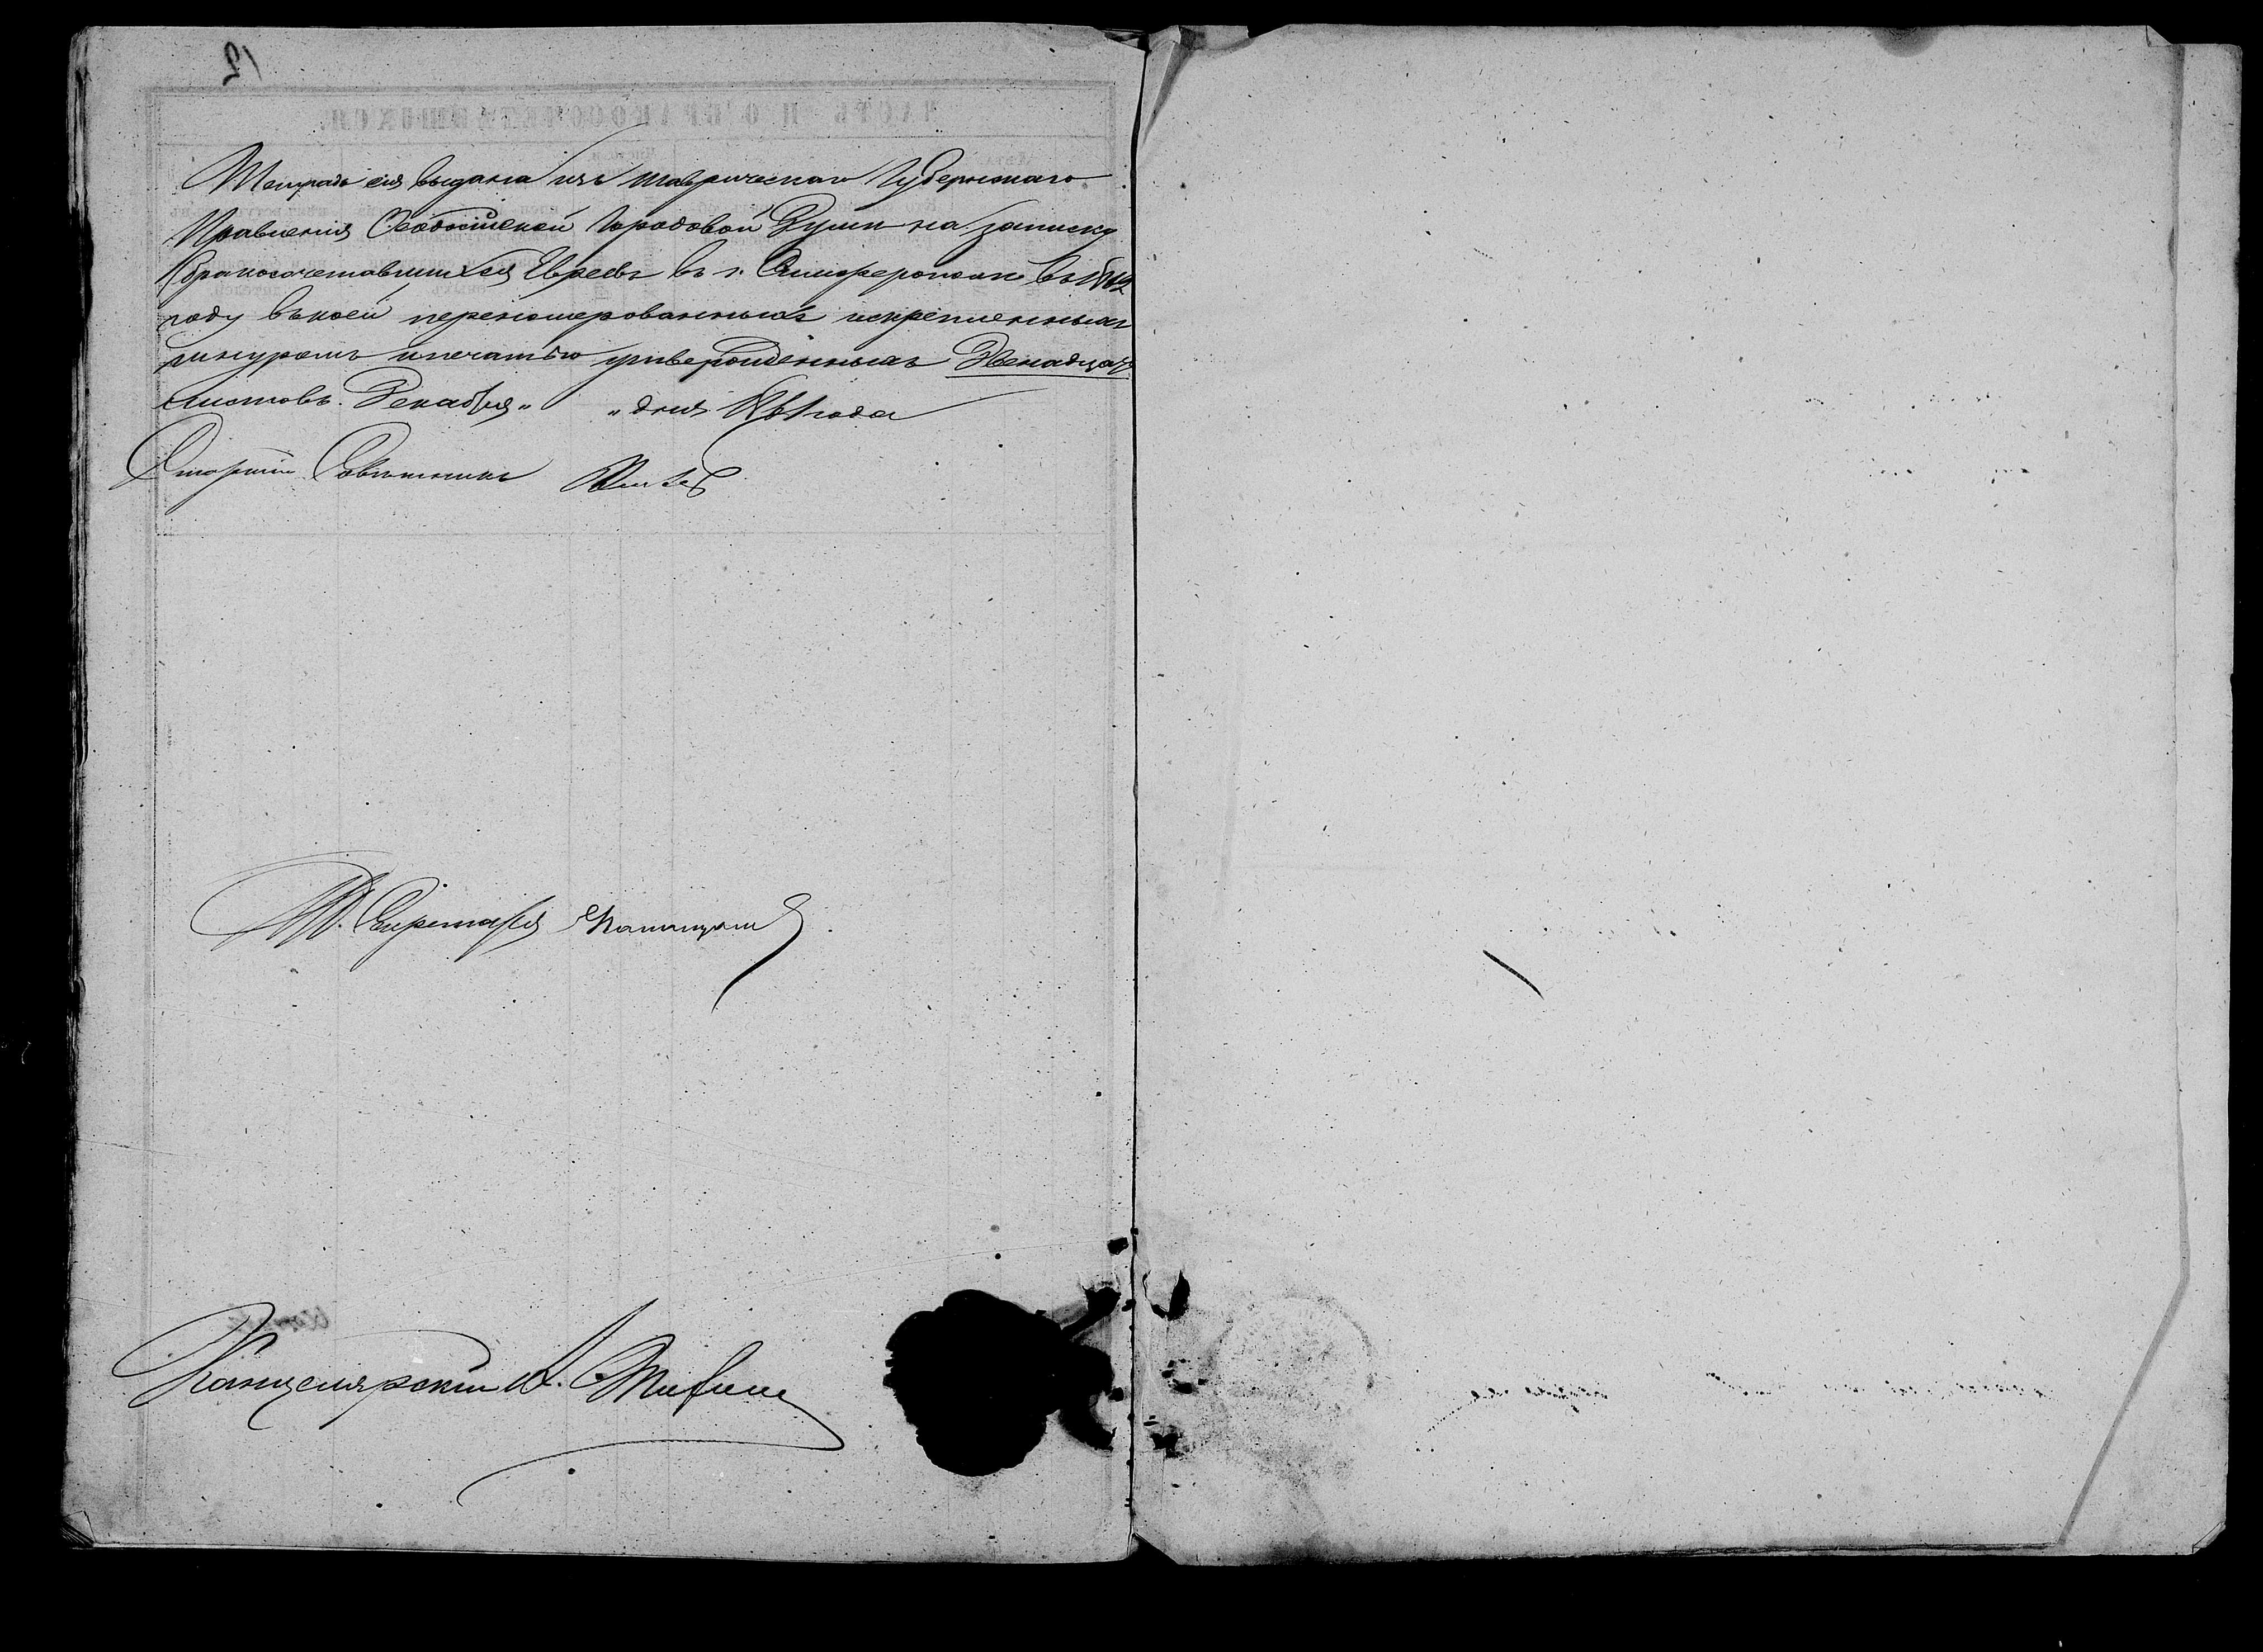 12
ЧАСТЬ II О БРАКОСОЧЕТАВШИХСЯ.
Тетрадь сія выдана изъ Таврическаго Губернскаго
Правленія Ѳеодосійской Городовой Думѣ на записку
бракосочетавшихся Евреевъ въ г. Симферополѣ въ 1862
году въ коей перенумерованныхъ и скрепленныхъ
шнуромъ и печатью утвержденныхъ Двенадцать
листовъ. Декабря „ „ дня 1861 года
Старшій Совѣтникъ
И.Д. Секретаря
Канцелярскій